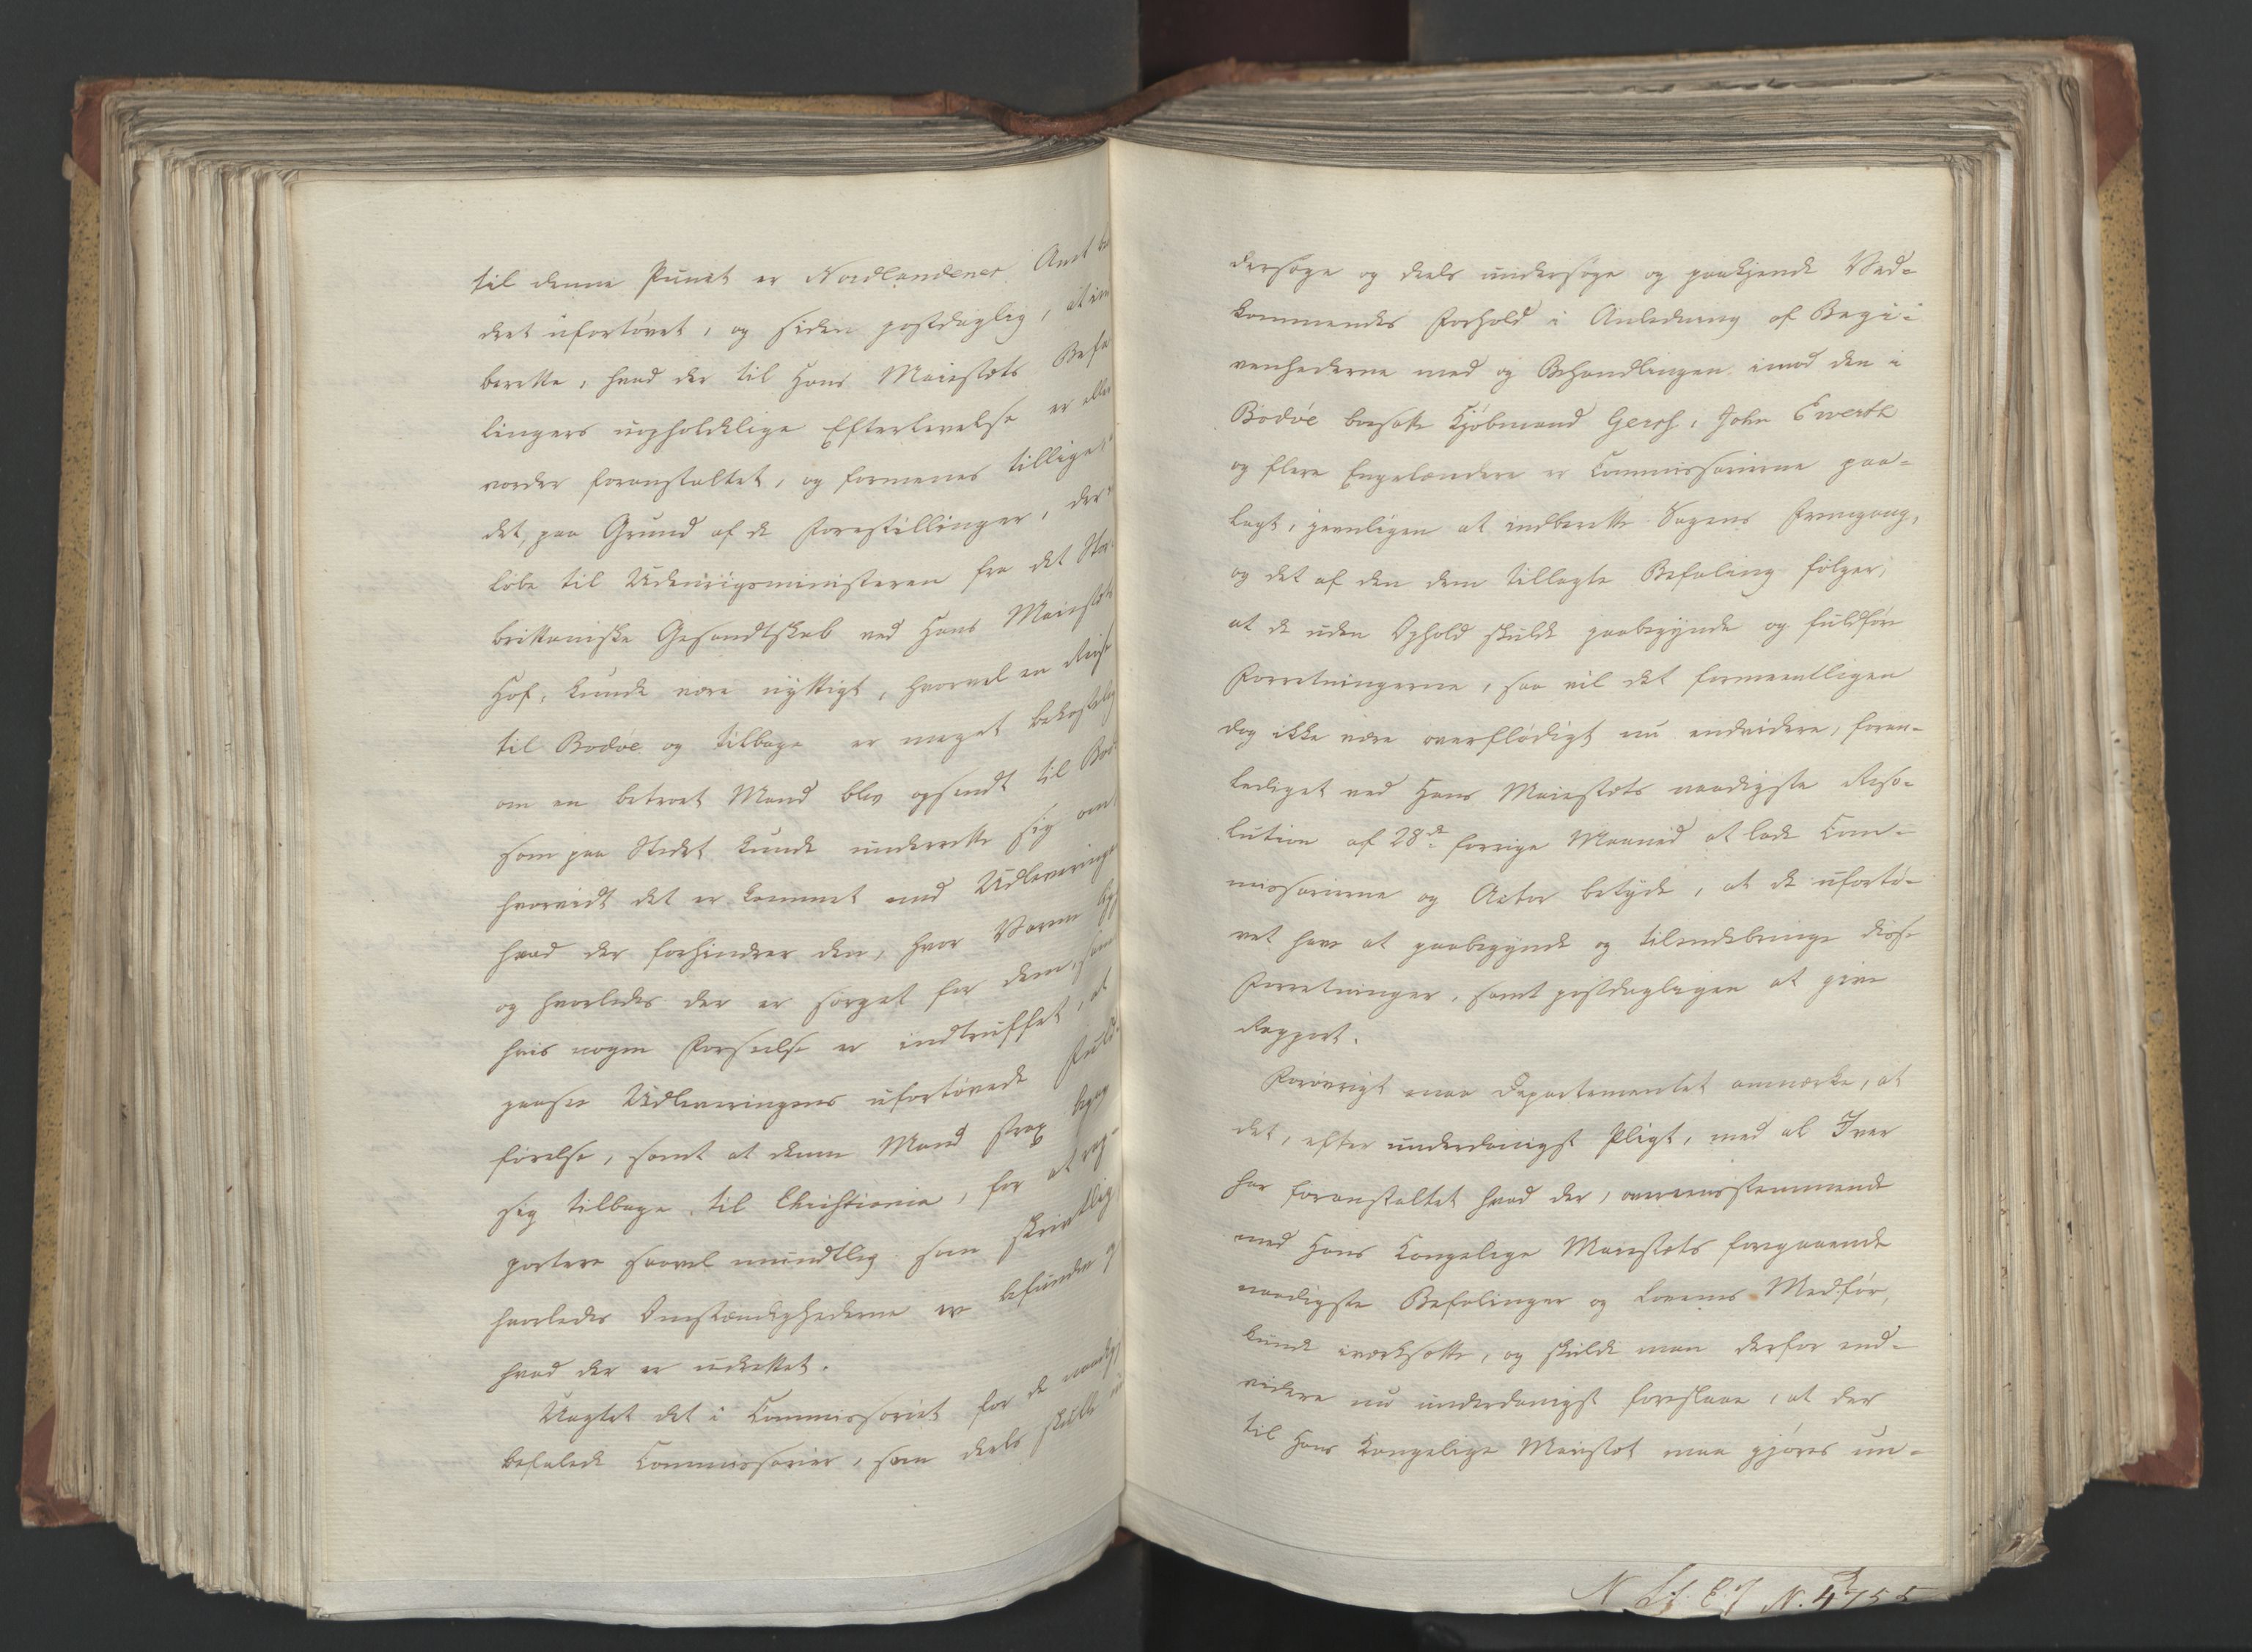 til denne Punct er Nordlandenes Amt be
dret ufortøvet, og siden postdaglig, at ind
berette, hvad der til Hans Majestæts Befa
lingers uopholdelige Efterlevelse er eller
vorder foranstaltet, og formenes tillige
det, paa Grund af de Forestillinger, der
løbe til Udenrigsministeren fra det Stor-
brittaniske Gesandtskab ved Hans Majestæts
Hof, kunde være nyttigt, hvorvel en Reise
til Bodøe og tilbage er meget bekostelig
om en betroet Mand blev opsendt til Bod
som paa Stedet kunde underrette sig om
hvorvidt det er kommet med Udleveringen
hvad der forhindrer den, hvor Varene
og hvorledes der er sørget for dem, samt
hvis nogen Forseelse er indtruffet, at
paasee Udleveringens ufortøvede Fuld-
førelse, samt at denne Mand strax begav
sig tilbage til Christiania, for at rap-
portere saavel mundtlig som skrivtlig
hvorledes Omstændighederne er befundne
hvad der er udrettet.
Uagtet det i Commissoriet for de naadigst
befalede Commissarier, som deels skulle
dersøge og deels undersøge og paakjende Ved-
kommendes Forhold i Anledning af Begi-
venhederne med og Behandlingen imod den i
Bodøe bosatte Kjøbmand Gersh, John Everth
og flere Engelændere er Commissarierne paa-
lagt, jevnligen at indberette Sagens Fremgang,
og det af den dem tillagte Befaling følger,
at de uden Ophold skulde paabegynde og fuldføre
Forretningerne, saa vil det formeentligen
dog ikke være overflødigt nu endvidere, foran-
lediget ved Hans Majestæts naadigste Reso-
lution af 28de forrige Maaned at lade Com-
missarierne og Actor betyde, at de ufortø-
vet have at paabegynde og tilendebringe disse
Forretninger, samt postdagligen at give
Rapport.
Forøvrigt maa Departementet anmærke, at
det, efter underdanigst Pligt, med al Iver
har foranstaltet hvad der, overeensstemmende
med Hans Kongelige Majestæts forgaaende
naadigste Befalinger og Lovenes Medfør,
kunde iværksættes, og skulde man derfor end-
videre nu underdanigst foreslaae, at der
til Hans Kongelige Majestæt maa gjøres un-